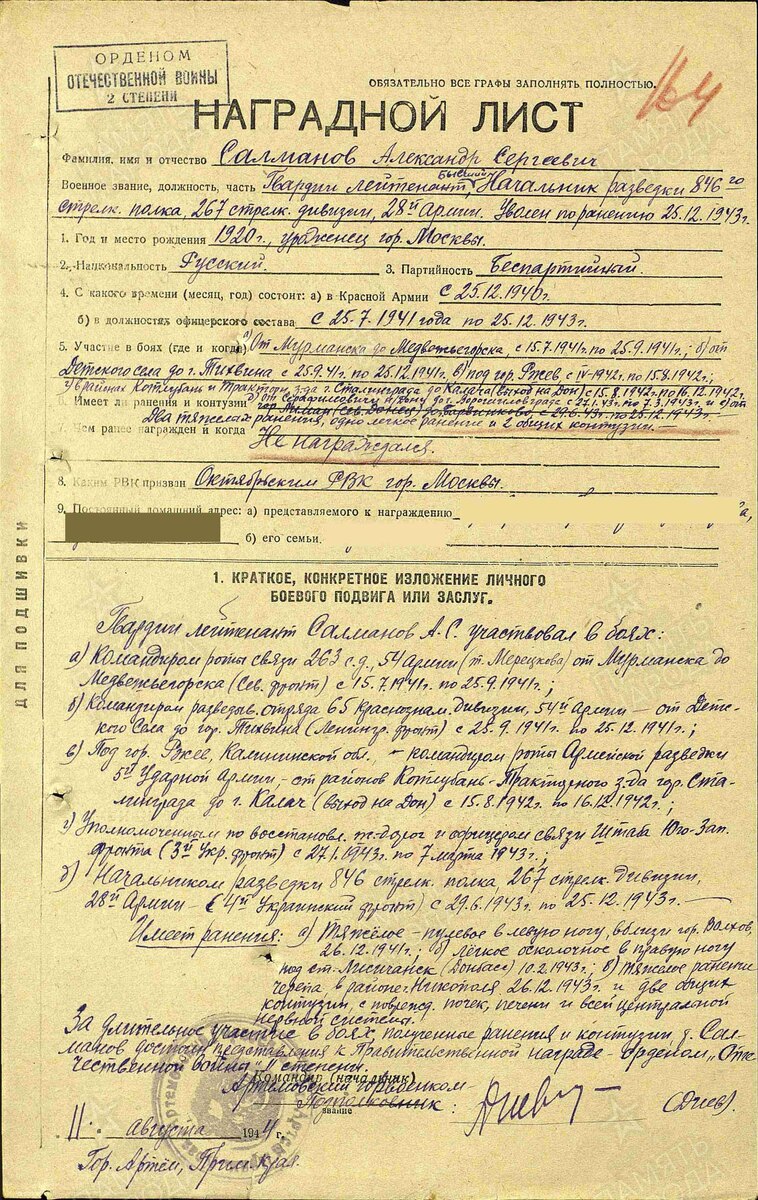 ОРДЕНОМ
ОТЕЧЕСТВЕННОЙ ВОЙНЫ
2 СТЕПЕНИ
164
ОБЯЗАТЕЛЬНО ВСЕ ГРАФЫ ЗАПОЛНЯТЬ ПОЛНОСТЬЮ.
НАГРАДНОЙ ЛИСТ
Фамилия, имя и отчество Салманов Александр Сергеевич
Военное звание, должность, часть Гвардии лейтенант, бывший Начальник разведки 846го
стрелк. полка, 267 стрелк. дивизии, 28й Армии. Уволен по ранению 25.12.1943г.
1. Год и место рождения 1920г., уроженец гор. Москвы.
2. Национальность Русский. 3. Партийность Беспартийный.
4. С какого времени (месяц, год) состоит: а) в Красной Армии с 25.12.1940г.
б) в должностях офицерского состава с 25.7.1941 года по 25.12.1943г.
5. Участие в боях (где и когда) а) От Мурманска до Медвежьегорска с 15.7.1941г. по 25.9.1941г.; б) от
Детского села до г. Тихвина с 25.9.41г. по 25.12.1941г. в) под гор. Ржев с IV-1942г. по 15.8.1942г.;
г) в районах Котлубань и Трактор. з-да г. Сталинграда до Калача (выход на Дон) с 15.8.1942г. по 16.12.1942г.
6. Имеет ли ранения и контузии д) от Серафимович и Дону до г. Ворошиловграда с 27.1.43г. по 7.3.1943г. и е) от
гор. (Сев. Донец) до с 29.6.43г. по 25.12.1943г.
Два тяжелых ранения, одно легкое ранение и 2 общих контузии. —
7. Чем ранее награжден и когда Не награждался.
8. Каким РВК призван Октябрьским РВК гор. Москвы.
9. Постоянный домашний адрес: а) представляемого к награждению
б) его семьи.
ДЛЯ ПОДШИВКИ
1. КРАТКОЕ, КОНКРЕТНОЕ ИЗЛОЖЕНИЕ ЛИЧНОГО
БОЕВОГО ПОДВИГА ИЛИ ЗАСЛУГ.
Гвардии лейтенант Салманов А.С. участвовал в боях:
а) Командиром роты связи 263 с.д., 54 Армии (т. Мерецкова) от Мурманска до
Медвежьегорска (Сев. фронт) с 15.7.1941г. по 25.9.1941г.;
б) Командиром разведыв. отряда 65 Краснознам. Дивизии, 54й Армии — от Детс-
кого Села до гор. Тихвина (Ленингр. фронт) с 25.9.1941г. по 25.12.1941г.;
в) Под гор. Ржев, Калининской обл., — командиром роты Армейской разведки
5й Ударной Армии — от районов Котлубань-Тракторного з-да гор. Ста-
линграда до г. Калач (выход на Дон) с 15.8.1942г. по 16.12.1942г.;
г) Уполномоченным по восстановл. ж-дорог и офицером связи Штаба Юго-Зап.
фронта (3й Укр. фронт) с 27.1.1943г. по 7 марта 1943г.;
д) Начальником разведки 846 стрелк. полка, 267 стрелк. Дивизии,
28й Армии — (4й Украинский фронт) с 29.6.1943г. по 25.12.1943г. —
Имеет ранения: а) Тяжёлое — пулевое в левую ногу, вблизи гор. Волхов,
26.12.1941г.; б) лёгкое осколочное в правую ногу
под ст. Лисичанск (Донбасс) 10.2.1943г.; в) тяжелое ранение
черепа в районе г. Никополя 26.12.1943г. и две общих
контузии, с поврежд. почек, печени и всей центральной
нервной системы.
За длительное участие в боях, полученные ранения и контузии т. Сал-
манов достоин представления к Правительственной награде — орденом „Оте-
чественной войны II степени.
Командир (начальник)
Артемовский горвоенком
Подполковник:
звание
(Диев).
11. августа 1944 г.
Гор. Артём, Прим. края.